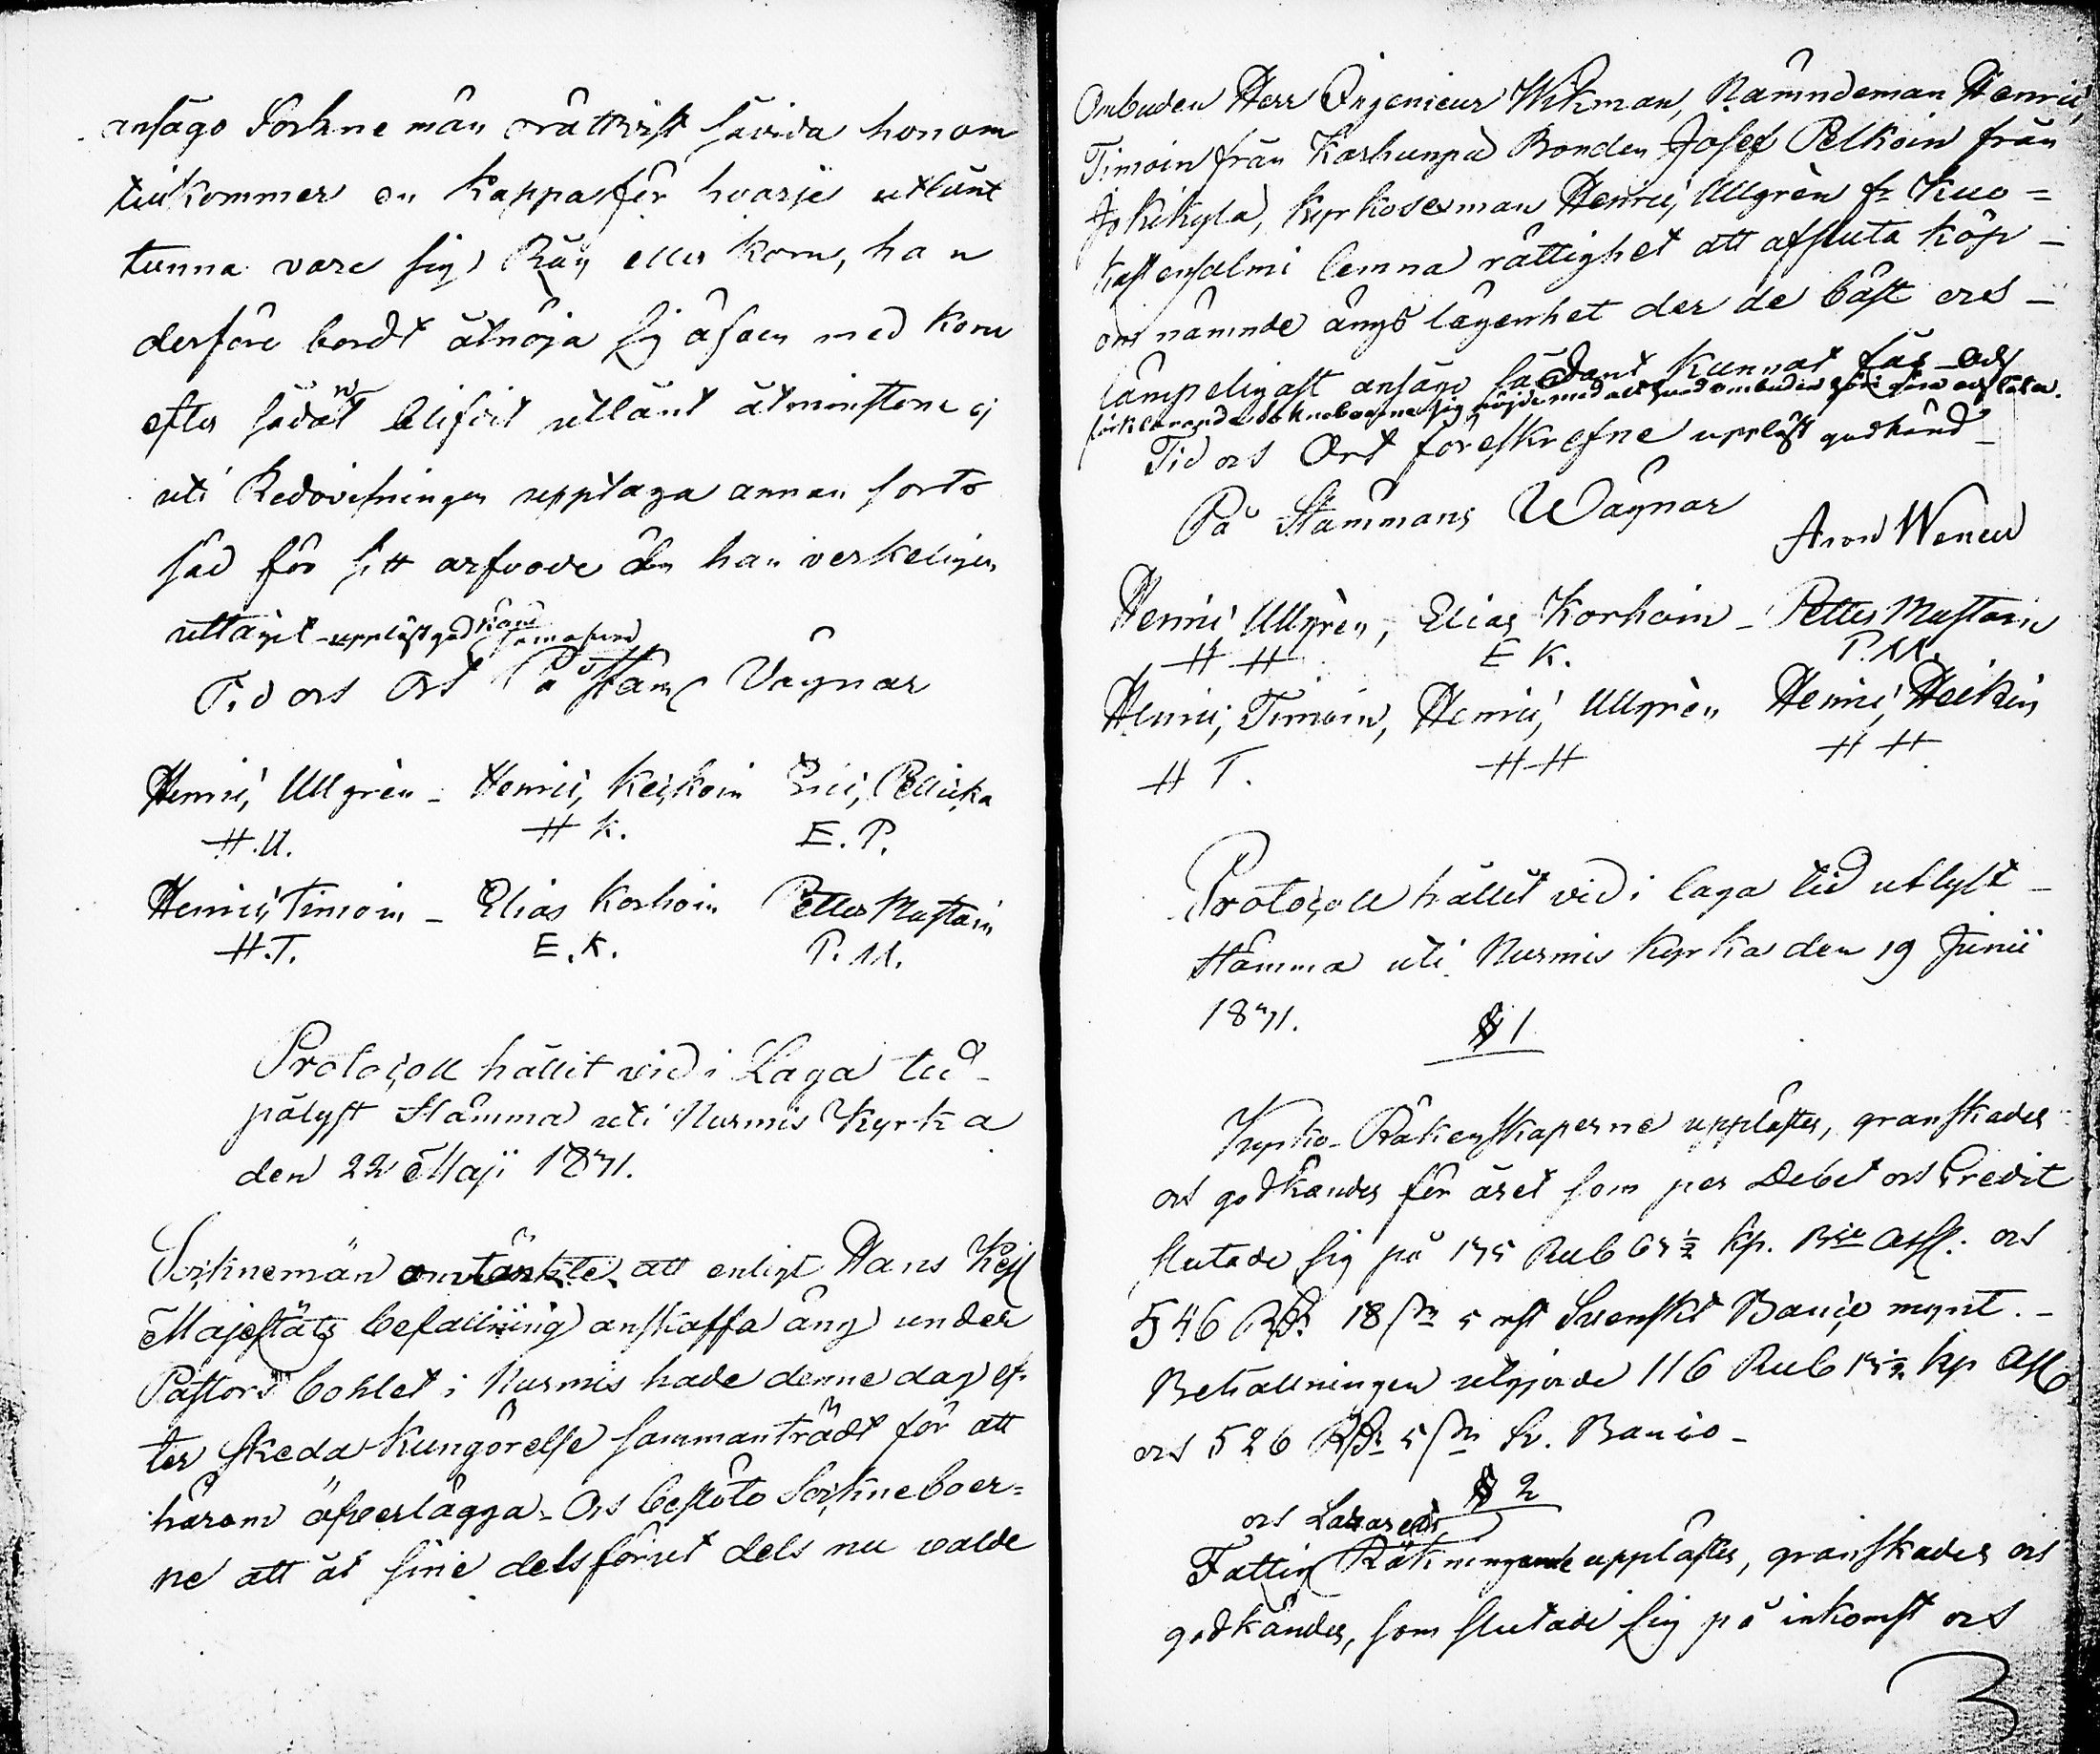 ansågo Sockne män orättvist såvida honom
tillkommer en kappa för hvarje utlånt
tunna vare sig Råg eller Korn, han
derföre bordt åtnöja sig äfven med Korn
efter sådant blifvit utlånt åtminstone ej
uti Redovisningen upptaga annan sorts
säd för sitt arfvode än han verkeligen
uttagit - uppläst godkänd
Tid och Ort På Stäms Vägnar
Henric Ullgrèn - Henric Keiskoin Eric Pellicka
H.U. H K. E.P.
Henric Timoin - Elias Korhoin Petter Mustoin
H.T. E.K. P.M.
Protocoll hållit vid i Laga tid
pålyst Stämma uti Nurmis Kyrka
den 22 Maji 1841.
Socknemän omtänkte att enligt Hans Kejs
Majestäts befallning anskaffa äng under
Pastors bohlet i Nurmis hade denne dag ef-
ter skeda Kungörelse sammanträdt för att
härom öfverlägga - Och beslöto Sockneboer=
ne att åt sine dels förut dels nu valde
Ombuden Herr Ingenieur Wikman, Nämndeman Henric
Timoin från Karhunpä Bonden Josef Pelkoin från
Jokikylä, Kyrkosexman Henric Ullgrèn fr Kuo=
hattensalmi lemna rättighet att afsluta köp -
om nämnde ängs lägenhet der de bäst och -
lämpeligast ansågo sådant kunnat fås - och
förklarande Sockneboerne sig nöjde med alt hvad ombuden göra och låta.
Tid och Ort föreskrefne uppläst godkänd -
På Stämmans Wägnar
Aron Wenell
Henric Ullgrèn, Elias Korhoin - Petter Mustoin
H H E K. P.M.
Henric Timoin, Henric Ullgrèn Henric Heikin
H T. H H H H
Protocoll hållit vid i laga tid utlyst -
Stämma uti Nurmis Kyrka den 19 Junii
1841. § 1
Kyrko-Räkenskaperne upplästes, granskades
och godkändes för året som per Debet och Credit
slutade sig på 145 Rub 64 1/2 Kp. Bco Ass. och
546 Rdr 18 s 5 rst Svenskt Banco mynt. -
Behållningen utgjorde 116 Rub 14 1/2 Kp Ass
och 526 Rdr 5 s Sv. Banco -
§ 2
och Lazarets
Fattig Räkningarne upplästes, granskades och
godkändes, som slutade sig på inkomst och
3